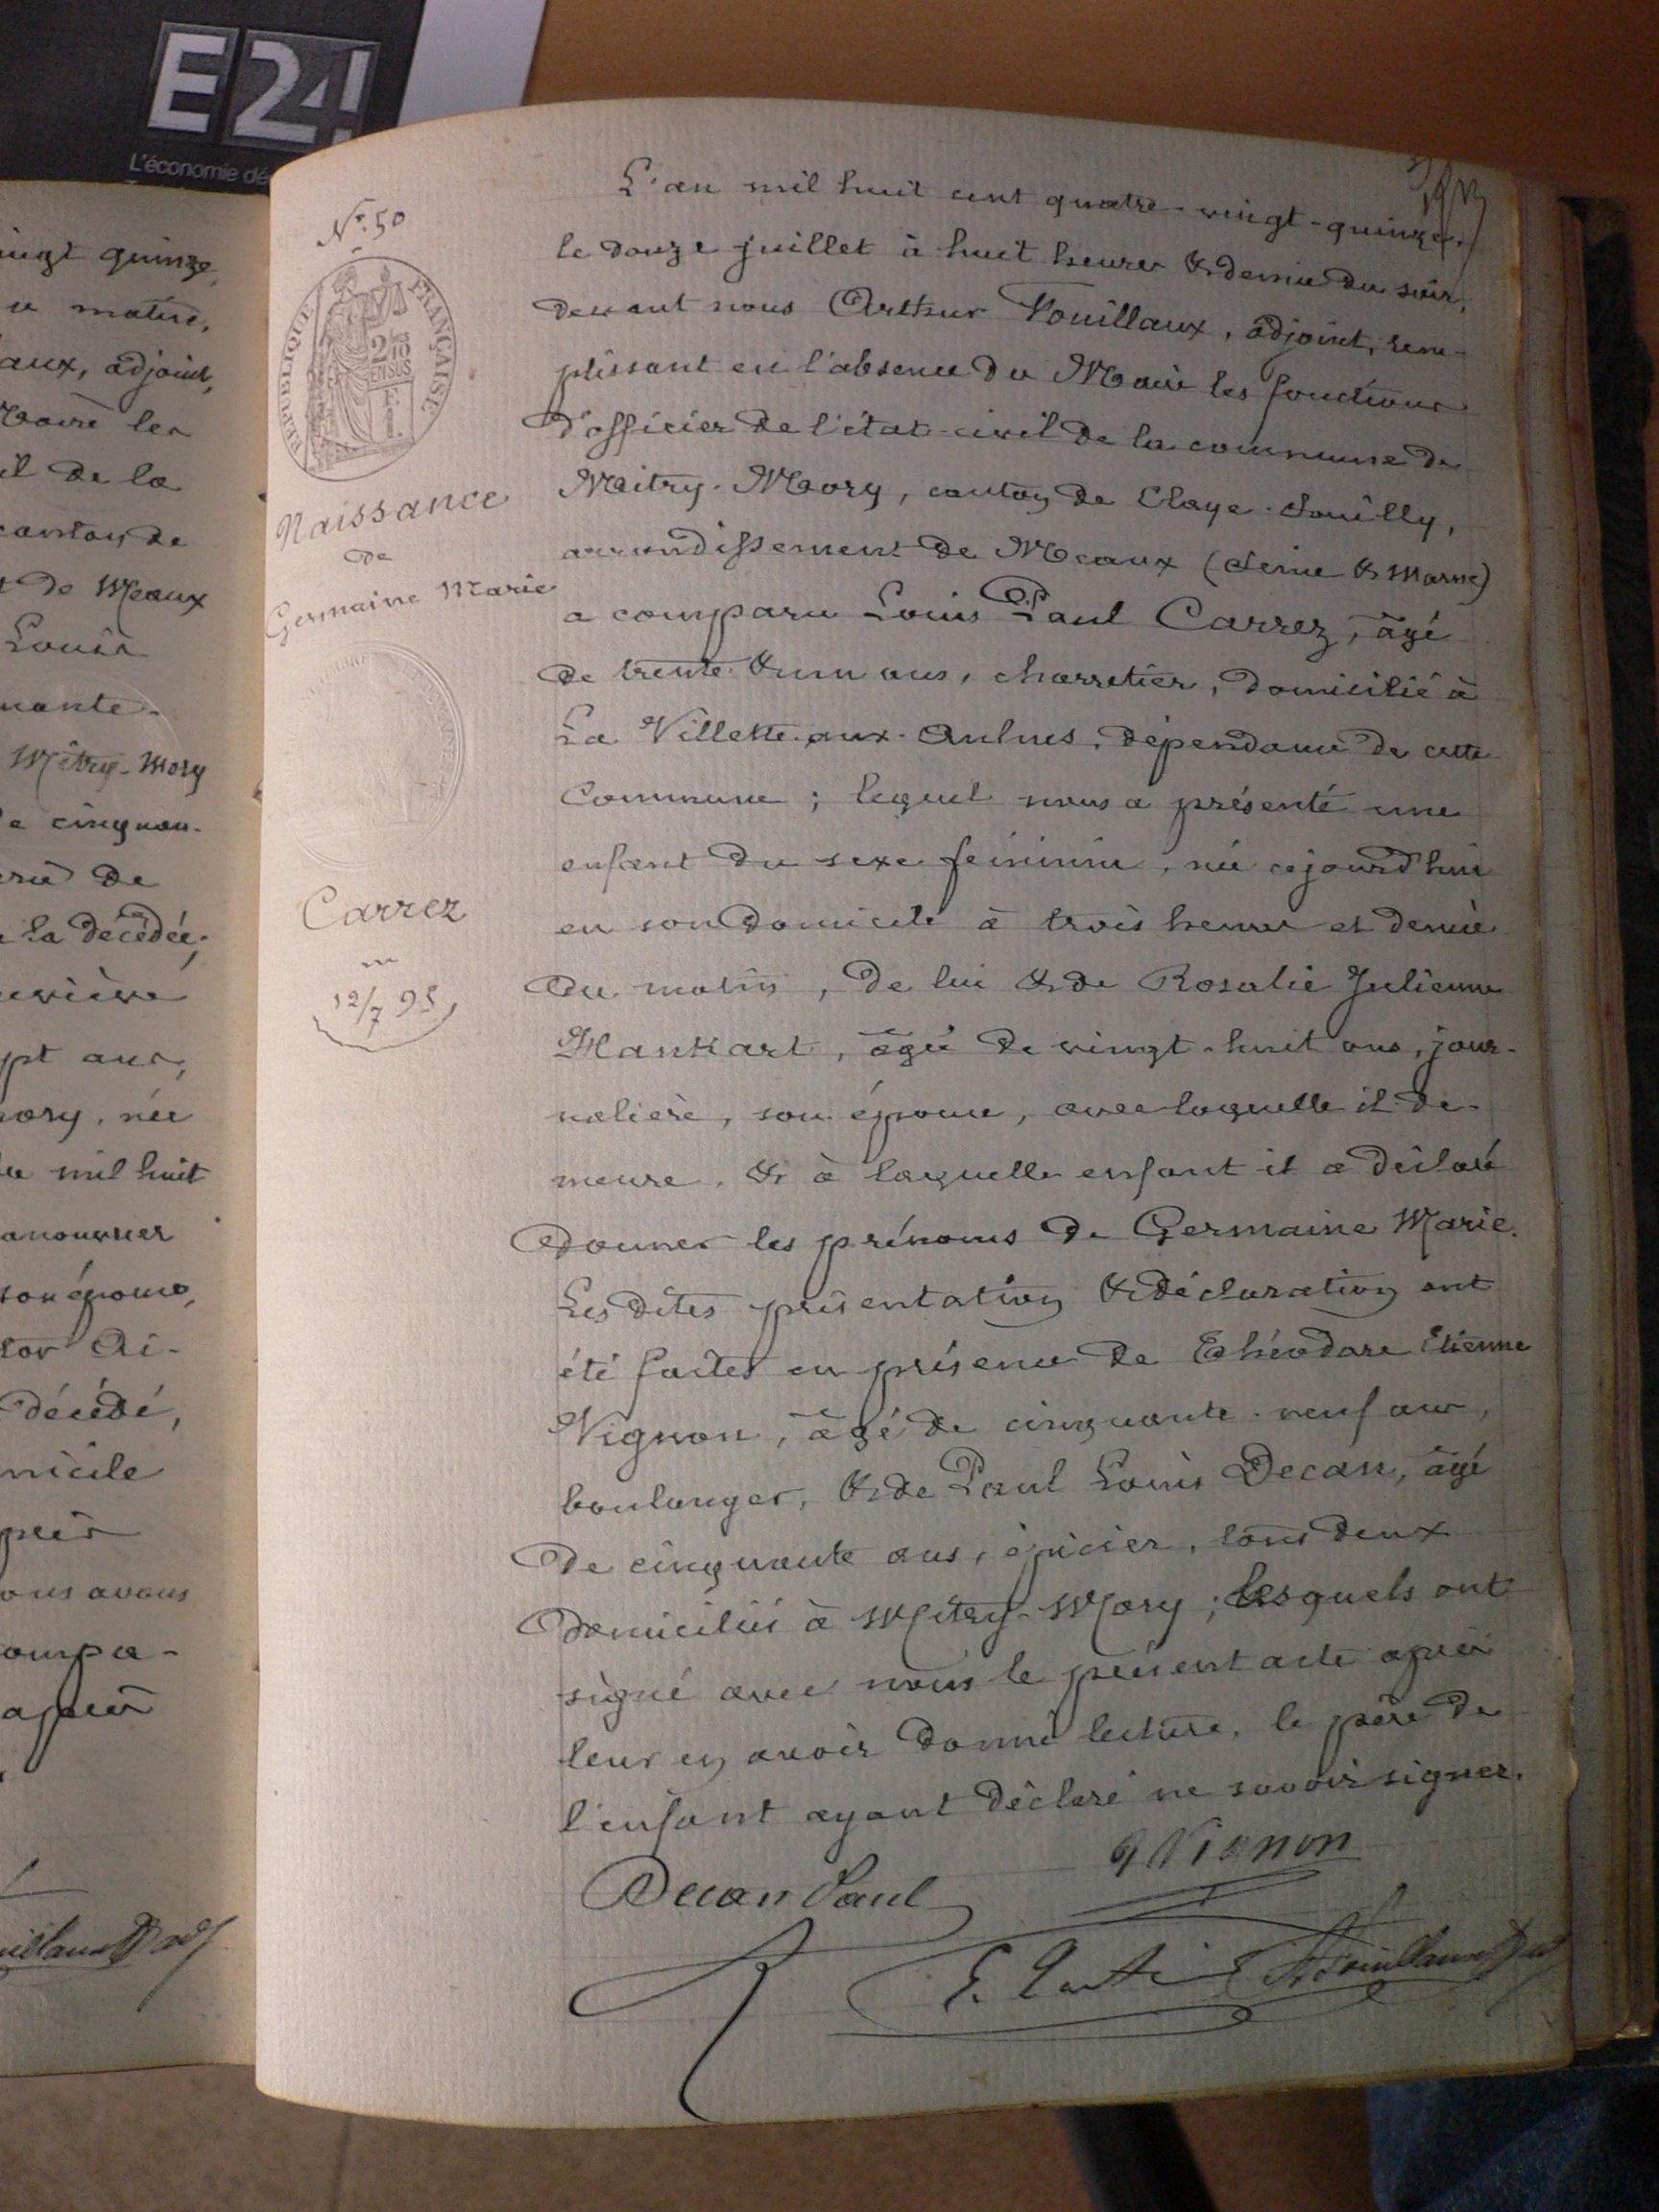 E24!
L'économie dé
ingt quinze,
aux, adjoint,
il de la
canton de
de Meaux
Louis
Mitry-Mory
e cinquan-
de
la décédée;
pt ans,
ory, née
mil huit
son épouse,
décédé,
micile
ous avons
ompa-
après
N° 50
RÉPUBLIQUE FRANÇAISE
2 10es
EN SUS
Naissance
de
Germaine Marie
Carrez
12/7 95
L'an mil huit cent quatre-vingt-quinze,
le douze juillet à huit heures & demie du soir,
devant nous Arthur Fouillaux, adjoint, rem-
plissant en l'absence du Maire les fonctions
d'officier de l'état-civil de la commune de
Mitry-Mory, canton de Claye-Souilly,
arrondissement de Meaux (Seine & Marne)
a comparu Louis Paul Carrez, âgé
de trente & un ans, charretier, domicilié à
La Villette-aux-Aulnes, dépendance de cette
Commune ; lequel nous a présenté une
enfant du sexe féminin, née cejourd'hui
en son domicile à trois heures et demie
du matin, de lui & de Rosalie Julienne
Hankart, âgée de vingt-huit ans, jour-
nalière, son épouse, avec laquelle il de-
meure, & à laquelle enfant il a déclaré
donner les prénoms de Germaine Marie.
Les dites présentation & déclaration ont
été faites en présence de Théodore Etienne
Vignon, âgé de cinquante-neuf ans,
boulanger, & de Paul Louis Decan, âgé
de cinquante ans, épicier, tous deux
domiciliés à Mitry-Mory ; lesquels ont
signé avec nous le présent acte après
leur en avoir donné lecture, le père de
l'enfant ayant déclaré ne savoir signer.
Vignon
Decan Paul
Fouillaux